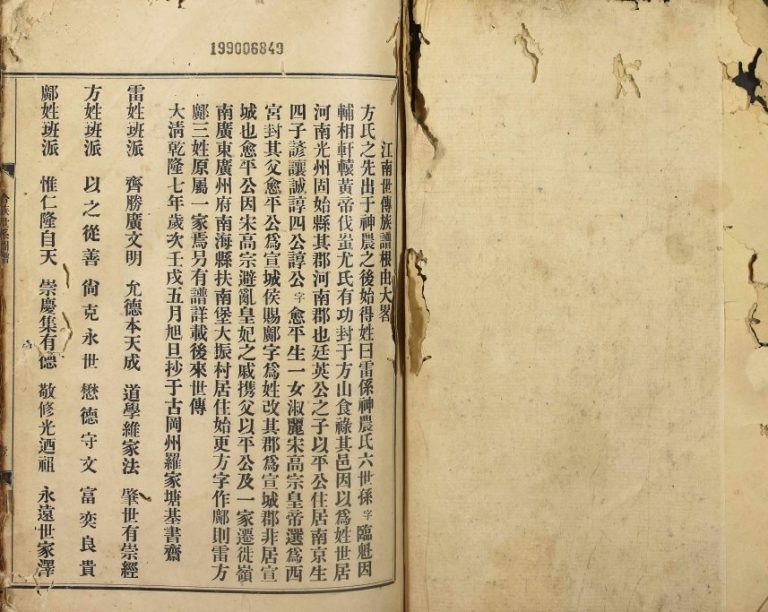 199006849
江南世傳族譜根出大畧
方氏之先出于神農之後始得姓曰雷係神農氏六世孫字臨魁因
輔相軒轅黃帝伐蚩尤氏有功封于方山食祿其邑因以爲姓世居
河南光州固始縣其郡河南郡也廷英公之子以平公住居南京生
四子諺讓誠諄四公諄公字愈平生一女淑麗宋高宗皇帝選爲西
宮封其父愈平公爲宣城侯賜鄺字爲姓改其郡爲宣城郡非居宣
城也愈平公因宋高宗避亂皇妃之戚携父以平公及一家遷徙嶺
南廣東廣州府南海縣扶南堡大振村居住始更方字作鄺則雷方
鄺三姓原屬一家焉另有譜詳載後來世傳
大清乾隆七年歲次壬戌五月旭旦抄于古岡州羅家塘基書齋
雷姓班派 齊勝廣文明 允德本天成 道學維家法 肇世有崇經
方姓班派 以之從善 尙克永世 懋德守文 富奕良貴
鄺姓班派 惟仁隆自天 崇慶集有德 敬修光迺祖 永遠世家澤